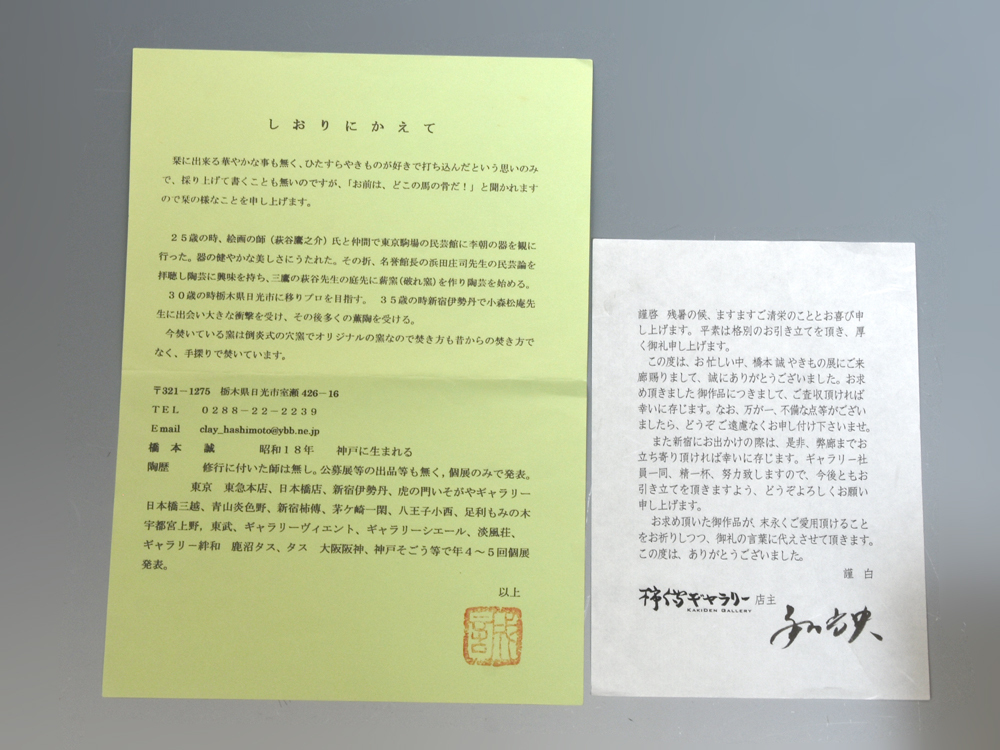 しおりにかえて
栞に出来る華やかな事も無く、ひたすらやきものが好きで打ち込んだという思いのみ
で、採り上げて書くことも無いのですが、「お前は、どこの馬の骨だ！」と聞かれます
ので栞の様なことを申し上げます。
２５歳の時、絵画の師（萩谷鷹之介）氏と仲間で東京駒場の民芸館に李朝の器を観に
行った。器の健やかな美しさにうたれた。その折、名誉館長の浜田庄司先生の民芸論を
拝聴し陶芸に興味を持ち、三鷹の萩谷先生の庭先に薪窯（破れ窯）を作り陶芸を始める。
３０歳の時栃木県日光市に移りプロを目指す。 ３５歳の時新宿伊勢丹で小森松庵先
生に出会い大きな衝撃を受け、その後多くの薫陶を受ける。
今焚いている窯は倒炎式の穴窯でオリジナルの窯なので焚き方も昔からの焚き方で
なく、手探りで焚いています。
〒321－1275 栃木県日光市室瀬 426－16
ＴＥＬ ０２８８－２２－２２３９
Ｅmail clay_hashimoto@ybb.ne.jp
橋本 誠 昭和１８年 神戸に生まれる
陶歴 修行に付いた師は無し。公募展等の出品等も無く，個展のみで発表。
東京 東急本店、日本橋店、新宿伊勢丹、虎の門いそがやギャラリー
日本橋三越、青山炎色野、新宿柿傳、茅ケ崎一閑、八王子小西、足利もみの木
宇都宮上野，東武、ギャラリーヴィエント、ギャラリーシエール、淡風荘、
ギャラリー絆和 鹿沼タス、タス 大阪阪神、神戸そごう等で年４～５回個展
発表。
以上
謹啓 残暑の候、ますますご清栄のこととお喜び申
し上げます。平素は格別のお引き立てを頂き、厚
く御礼申し上げます。
この度は、お忙しい中、橋本 誠 やきもの展にご来
廊賜りまして、誠にありがとうございました。お求
め頂きました 御作品につきまして、ご査収頂ければ
幸いに存じます。なお、万が一、不備な点等がござい
ましたら、どうぞご遠慮なくお申し付け下さいませ。
また新宿にお出かけの際は、是非、弊廊までお
立ち寄り頂ければ幸いに存じます。ギャラリー社
員一同、精一杯、努力致しますので、今後ともお
引き立てを頂きますよう、どうぞよろしくお願い
申し上げます。
お求め頂いた御作品が、末永くご愛用頂けること
をお祈りしつつ、御礼の言葉に代えさせて頂きます。
この度は、ありがとうございました。
謹 白
柿傳ギャラリー 店主
KAKIDEN GALLERY